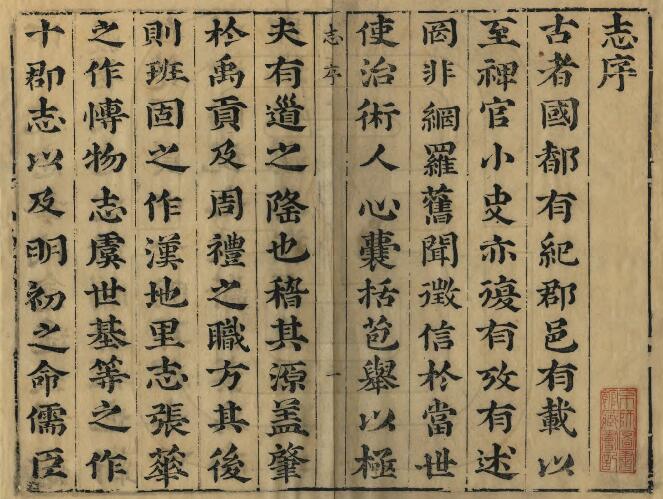 志序
古者國都有紀郡邑有載以
至稗官小史亦復有攷有述
罔非網羅舊聞徵信於當世
使治術人心囊括苞舉以極
志序
一
夫有道之隆也稽其源盖肇
於禹貢及周禮之職方其後
則班固之作漢地里志張華
之作博物志虞世基等之作
十郡志以及明初之命儒臣